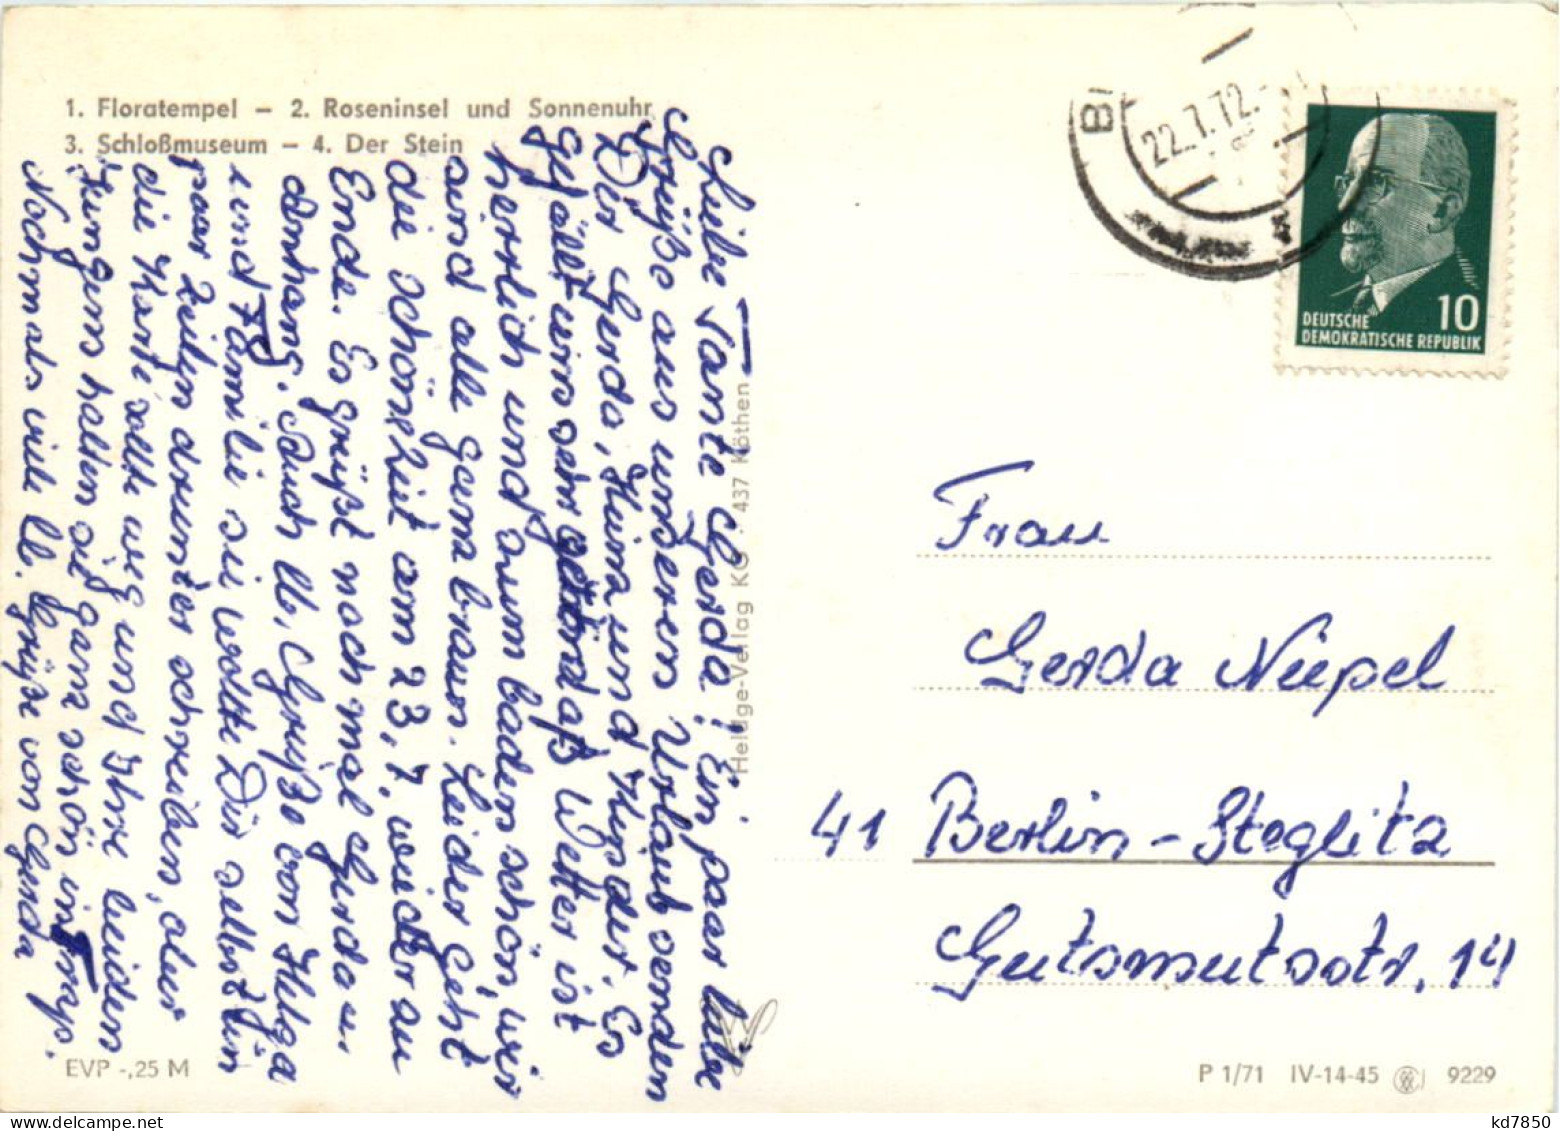 1. Floratempel – 2. Roseninsel und Sonnenuhr
3. Schloßmuseum – 4. Der Stein
Liebe Tante Gerda! Ein paar liebe
Grüße aus unseren Urlaub senden
Dir Gerda, Heinz und Kinder. Es
gefällt uns sehr daß Wetter ist
herrlich und zum baden schön, wir
sind alle ganz braun. Leider geht
die schöne Zeit am 23,7, wieder zu
Ende. Es grüßt noch mal Gerda u.
Anhang. Auch lb, Grüße von Helga
und Familie sie wollte Dir selbst ein
paar Zeilen drunter schreiben, aber
die Karte sollte weg und Ihre beiden
Jungens halten sie ganz schön in
Nochmals viele lb. Grüße von Gerda
Heldge-Verlag KG · 437 Köthen
EVP -,25 M
B
22.7.72.-
10
DEUTSCHE
DEMOKRATISCHE REPUBLIK
Frau
Gerda Niepel
41 Berlin-Steglitz
Gutsmutsstr, 14
P 1/71 IV-14-45 9229
kd7850